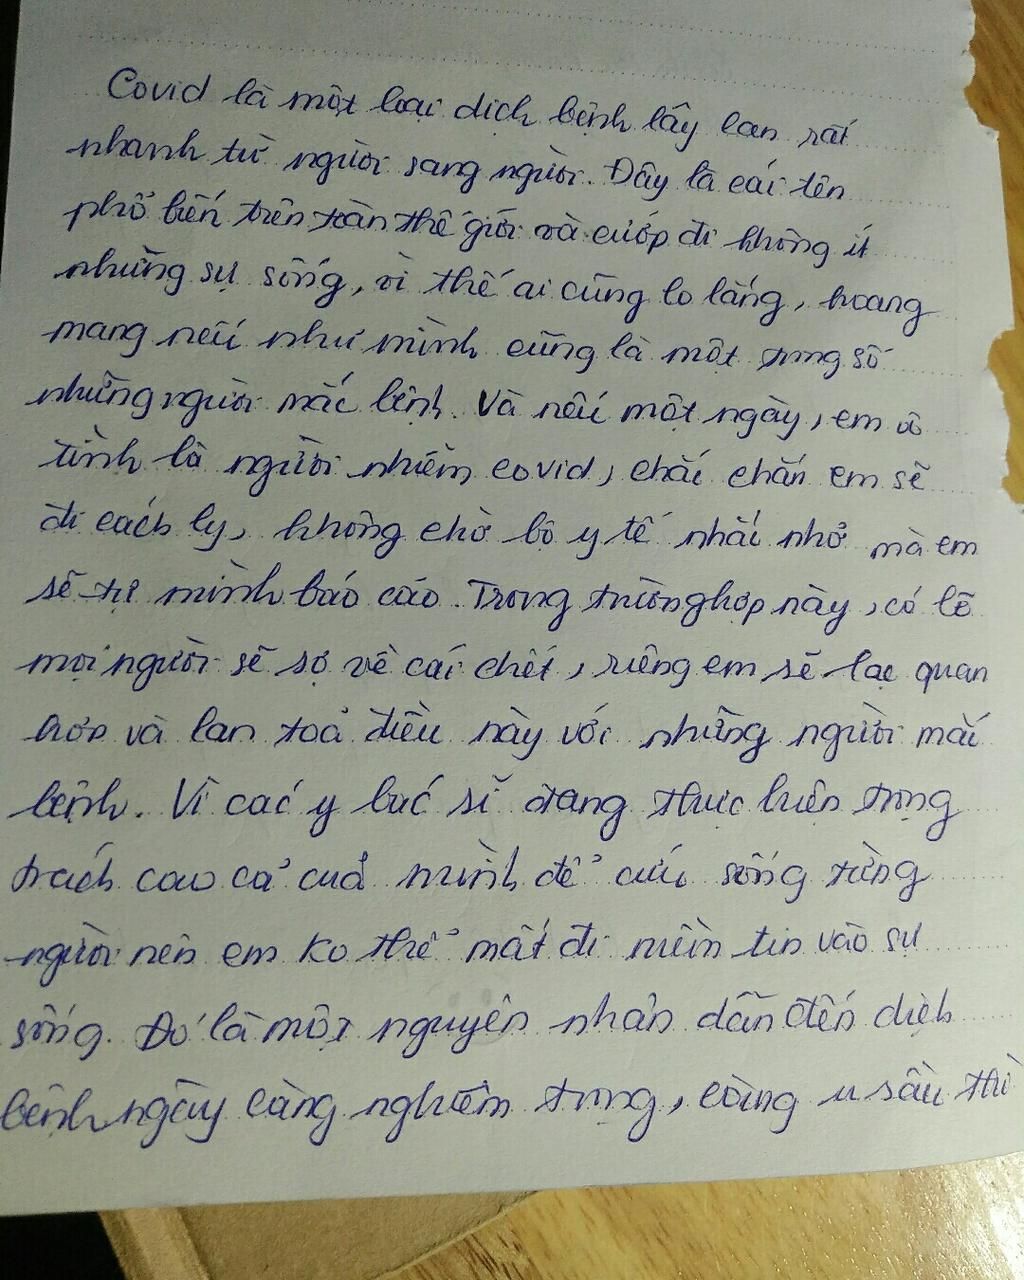 Covid là một loại dịch bệnh lây lan rất
nhanh từ người sang người. Đây là cái tên
phổ biến trên toàn thế giới và cướp đi không ít
những sự sống, vì thế ai cũng lo lắng, hoang
mang nếu như mình cũng là một trong số
những người mắc bệnh. Và nếu một ngày, em vô
tình là người nhiễm covid, chắc chắn em sẽ
đi cách ly, không chờ bộ y tế nhắc nhở mà em
sẽ tự mình báo cáo. Trong trường hợp này, có lẽ
mọi người sẽ sợ về cái chết, riêng em sẽ lạc quan
hơn và lan toả điều này với những người mắc
bệnh. Vì các y bác sĩ đang thực hiện trọng
trách cao cả của mình để cứu sống từng
người nên em ko thể mất đi niềm tin vào sự
sống. Đó là một nguyên nhân dẫn đến dịch
bệnh ngày càng nghiêm trọng, càng u sầu thì